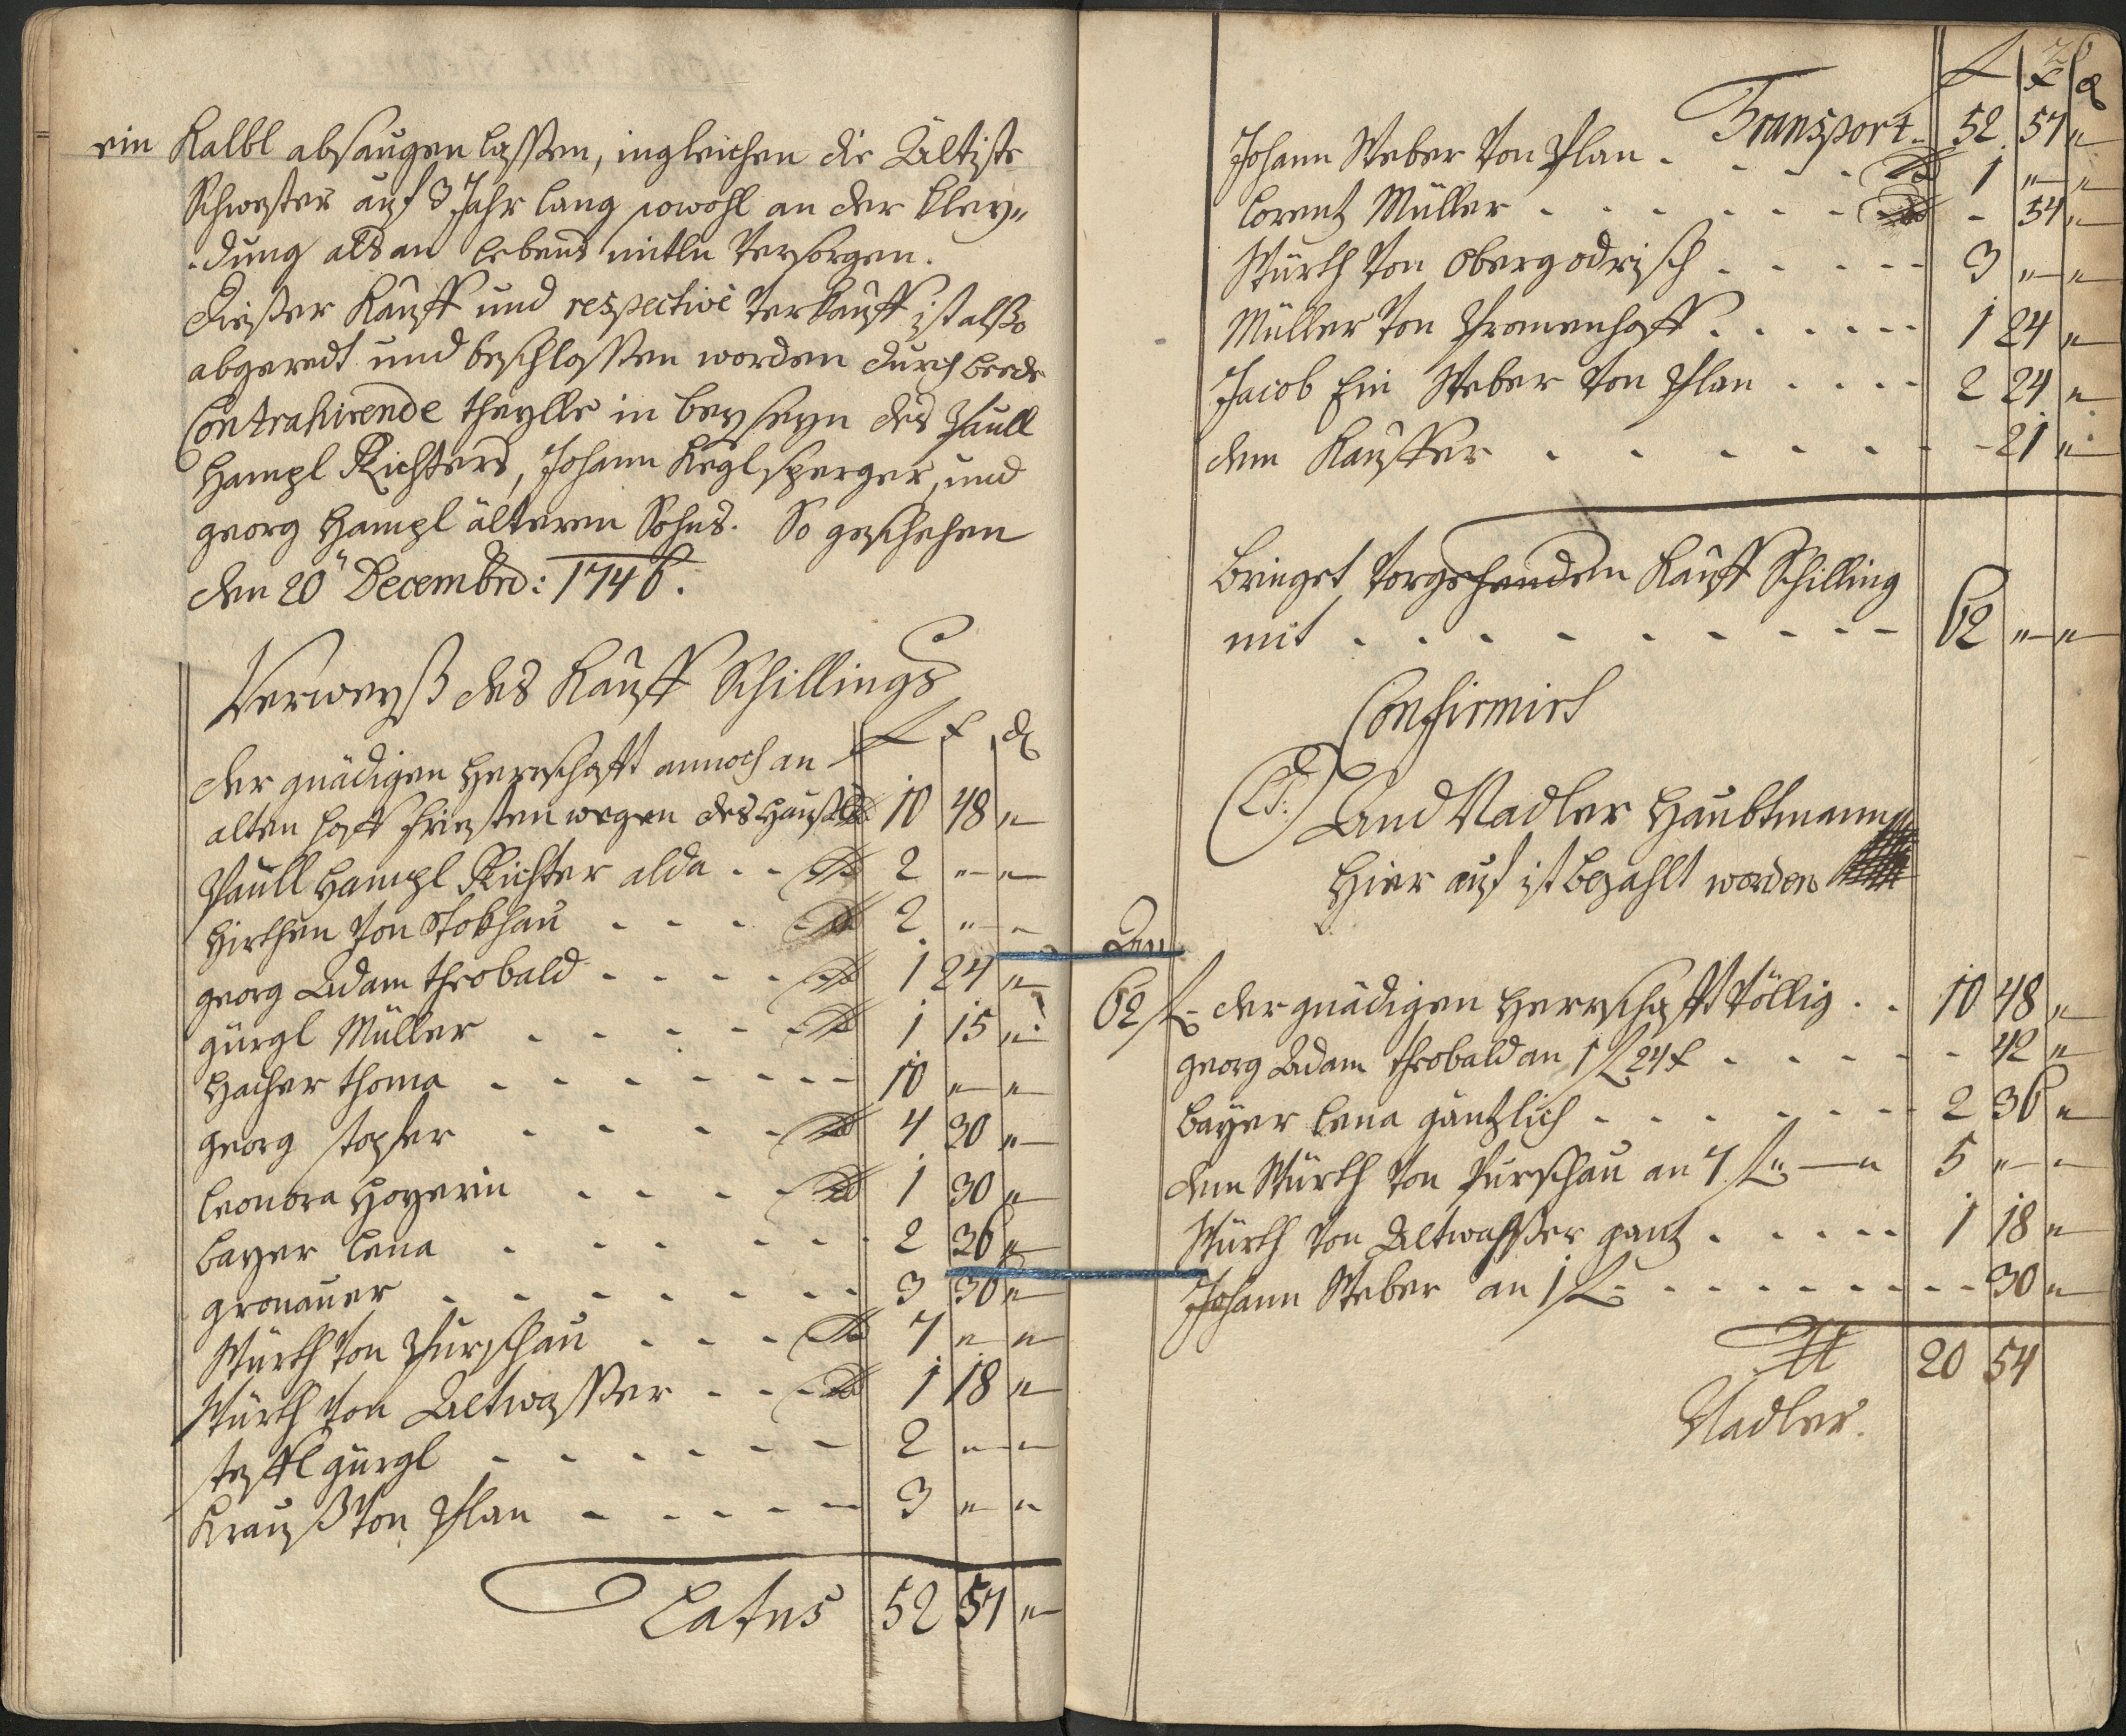 ein Kalbl absaugen lassen, ingleichen die Ältiste
Schwester auf 3 Jahr lang sowohl an der Kley„
„dung als an lebens mitln Versorgen.
Dießer Kauff und respective Verkauff ist alßo
abgeredt und beschlossen worden durch beede
Contrahirende theylle in beyseyn des Paull
Hampl Richters, Johann Keglsperger, und
georg Hampl älteren Sohns. So geschehen
den 20 Decembris: 1746.
Verweyß des Kauff Schillings
f x d
der gnädigen Herrschafft annoch an
alten hoff fristen wegen des Haußls 10 48 „
Paull Hampl Richter alda . . 2 „ „
Hirthen Von Stokhau . . . 2 „ „
georg Adam Theobald . . . . 1 24 „
gürgl Müller . . . . . 1 15 „
Hacher thoma . . . . . . . 10 „ „
georg stopfer . . . . 4 30 „
leonora Hoyerin . . . . 1 30 „
bayer lena . . . . . . 2 36 „
gronauer . . . . . . . 3 36 „
Würth Von Purschau . . . 7 „ „
Würth Von Altwasser . . . 1 18 „
stoffl gürgl . . . . . . 2 „ „
Krauß Von Plan . . . . . 3 „ „
Latus 52 57 „
f x d
Transport . 52 57 „
Johann Weber Von Plan . . . . 1 „ „
lorentz Müller . . . . . . . - 54 „
Würth Von Obergodrisch . . . . . 3 „ „
Müller Von Promenhoff . . . . . . 1 24 „
Jacob Ein Weber Von Plan . . . . 2 24 „
dem Kauffer . . . . . . . - 21 „
bringet Vorgehenden Kauff Schilling
mit . . . . . . . . . 62 „ „
Confirmirt
And Nadler Haubtmann
Hier auf ist bezahlt worden
Den
62 f. der gnädigen Herrschafft Völlig . . 10 48 „
georg Adam theobald an 1 f 24 x . . . . - 42 „
bayer lena gäntzlich . . . . . . . 2 36 „
dem Würth Von Purschau an 7 f „ — „ 5 „ „
Würth Von Altwasser gantz . . . . . 1 18 „
Johann Weber an 1 f . . . . . . . . . 30 „
20 54
Nadler.